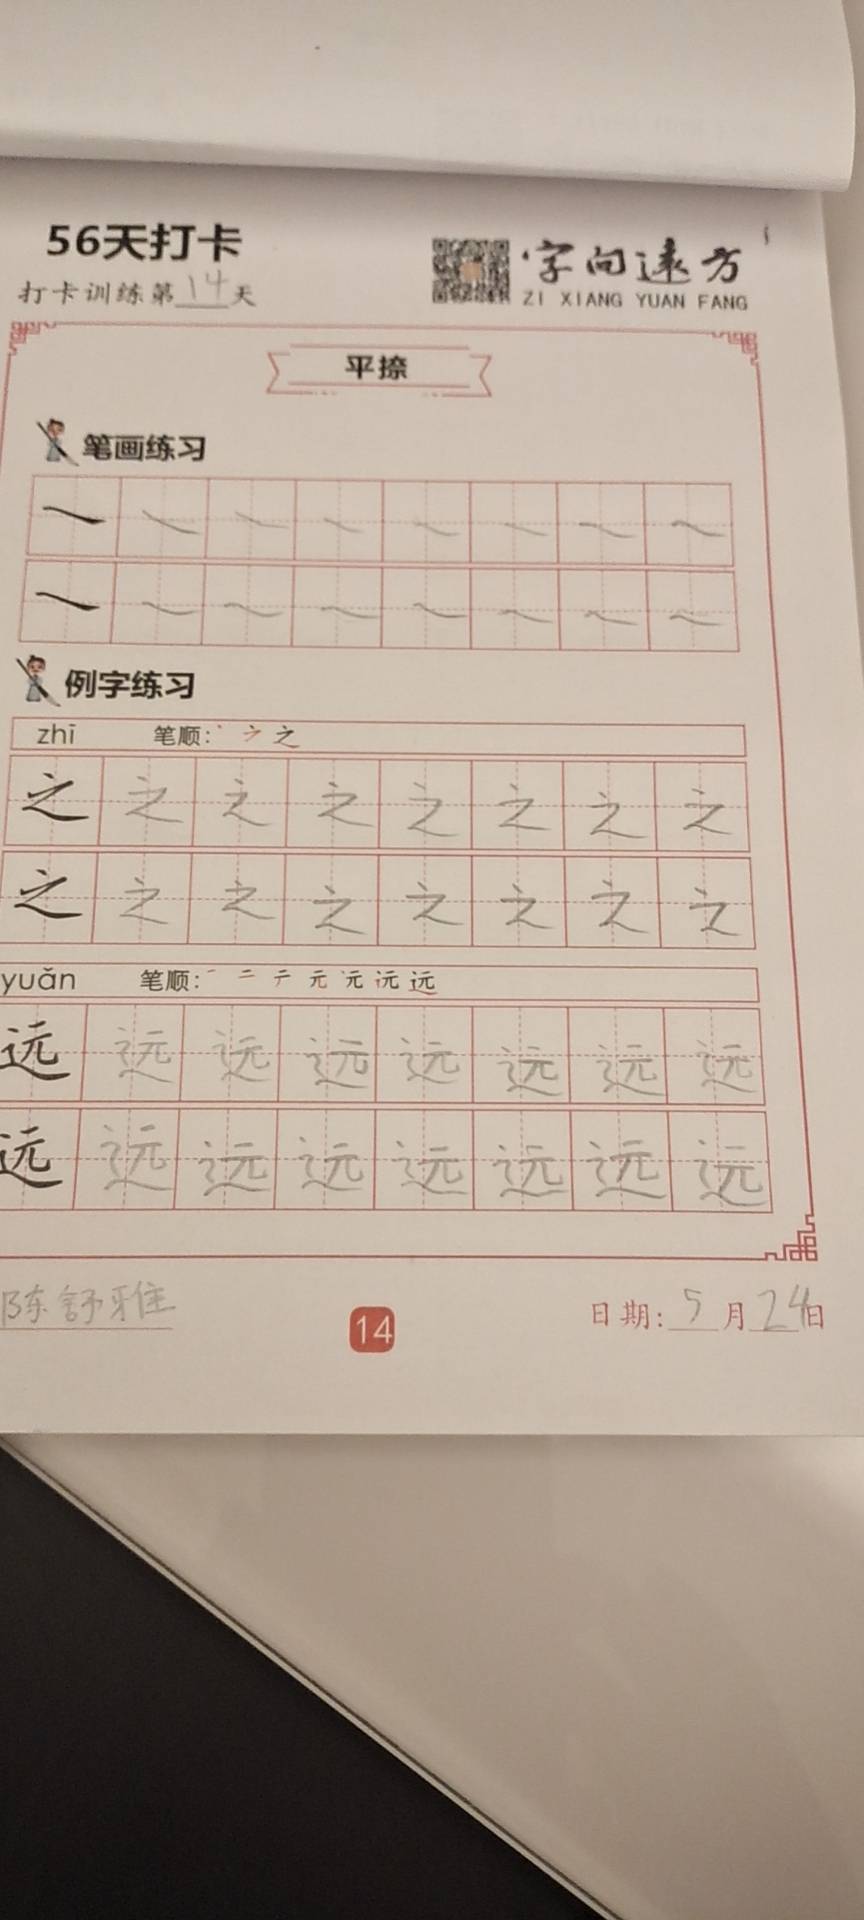 56天打卡
字向远方
打卡训练第14天
ZI XIANG YUAN FANG
平捺
笔画练习
例字练习
zhī 笔顺: 丶 ㇇ 之
之 之 之 之 之 之 之 之
之 之 之 之 之 之 之 之
yuǎn 笔顺: 一 二 テ 元 远 远 远
远 远 远 远 远 远 远 远
远 远 远 远 远 远 远 远
陈舒雅
14
日期: 5月24日